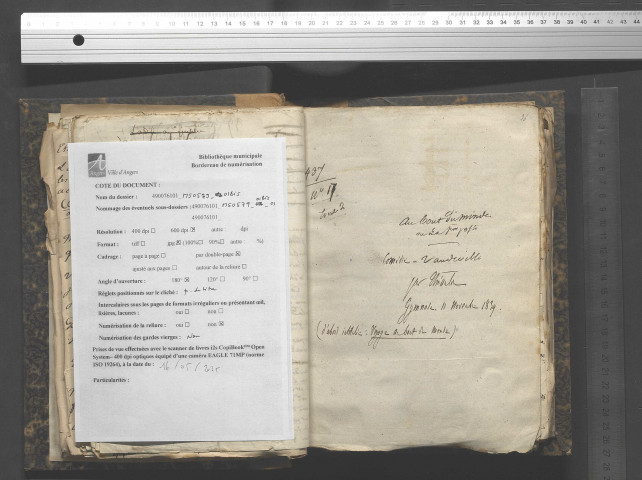 Bibliothèque municipale
Bordereau de numérisation
Angers Ville d'Angers
COTE DU DOCUMENT :
Nom du dossier : 490076101_
Nommage des éventuels sous-dossiers :490076101_
490076101_
Résolution : 400 dpi 600 dpi autre dpi
Format : tiff jpg 100% 90% autre %
Cadrage : page à page par double-page
ajusté aux pages autour de la reliure
Angle d'ouverture : 180° 120° 90°
Réglets positionnés sur le cliché :
Intercalaires sous les pages de formats irréguliers ou présentant
lisières, lacunes : oui non
Numérisation de la reliure : oui non
Numérisation des gardes vierges : Non
Prises de vue effectuées avec le scanner de livres i2s CopiBook Open
System– 400 dpi optiques équipé d'une caméra EAGLE 71MP (norme
ISO 19264), à la date du : 16/05/
Particularités :
437
n° 17
Au bout du monde
ou
Comédie - Vaudeville
par
Gymnase 11 Novembre 1839
(d'abord intitulée : Voyage au bout du monde)